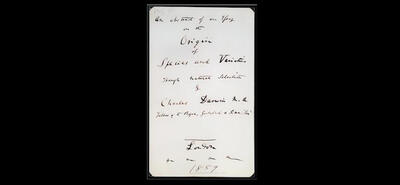 An abstract of an Essay
on the
Origin
of
Species and Varieties
Through Natural Selection
by
Charles Darwin M.A.
Fellow of the Royal, Geological & Linn. Soc.
London
1859